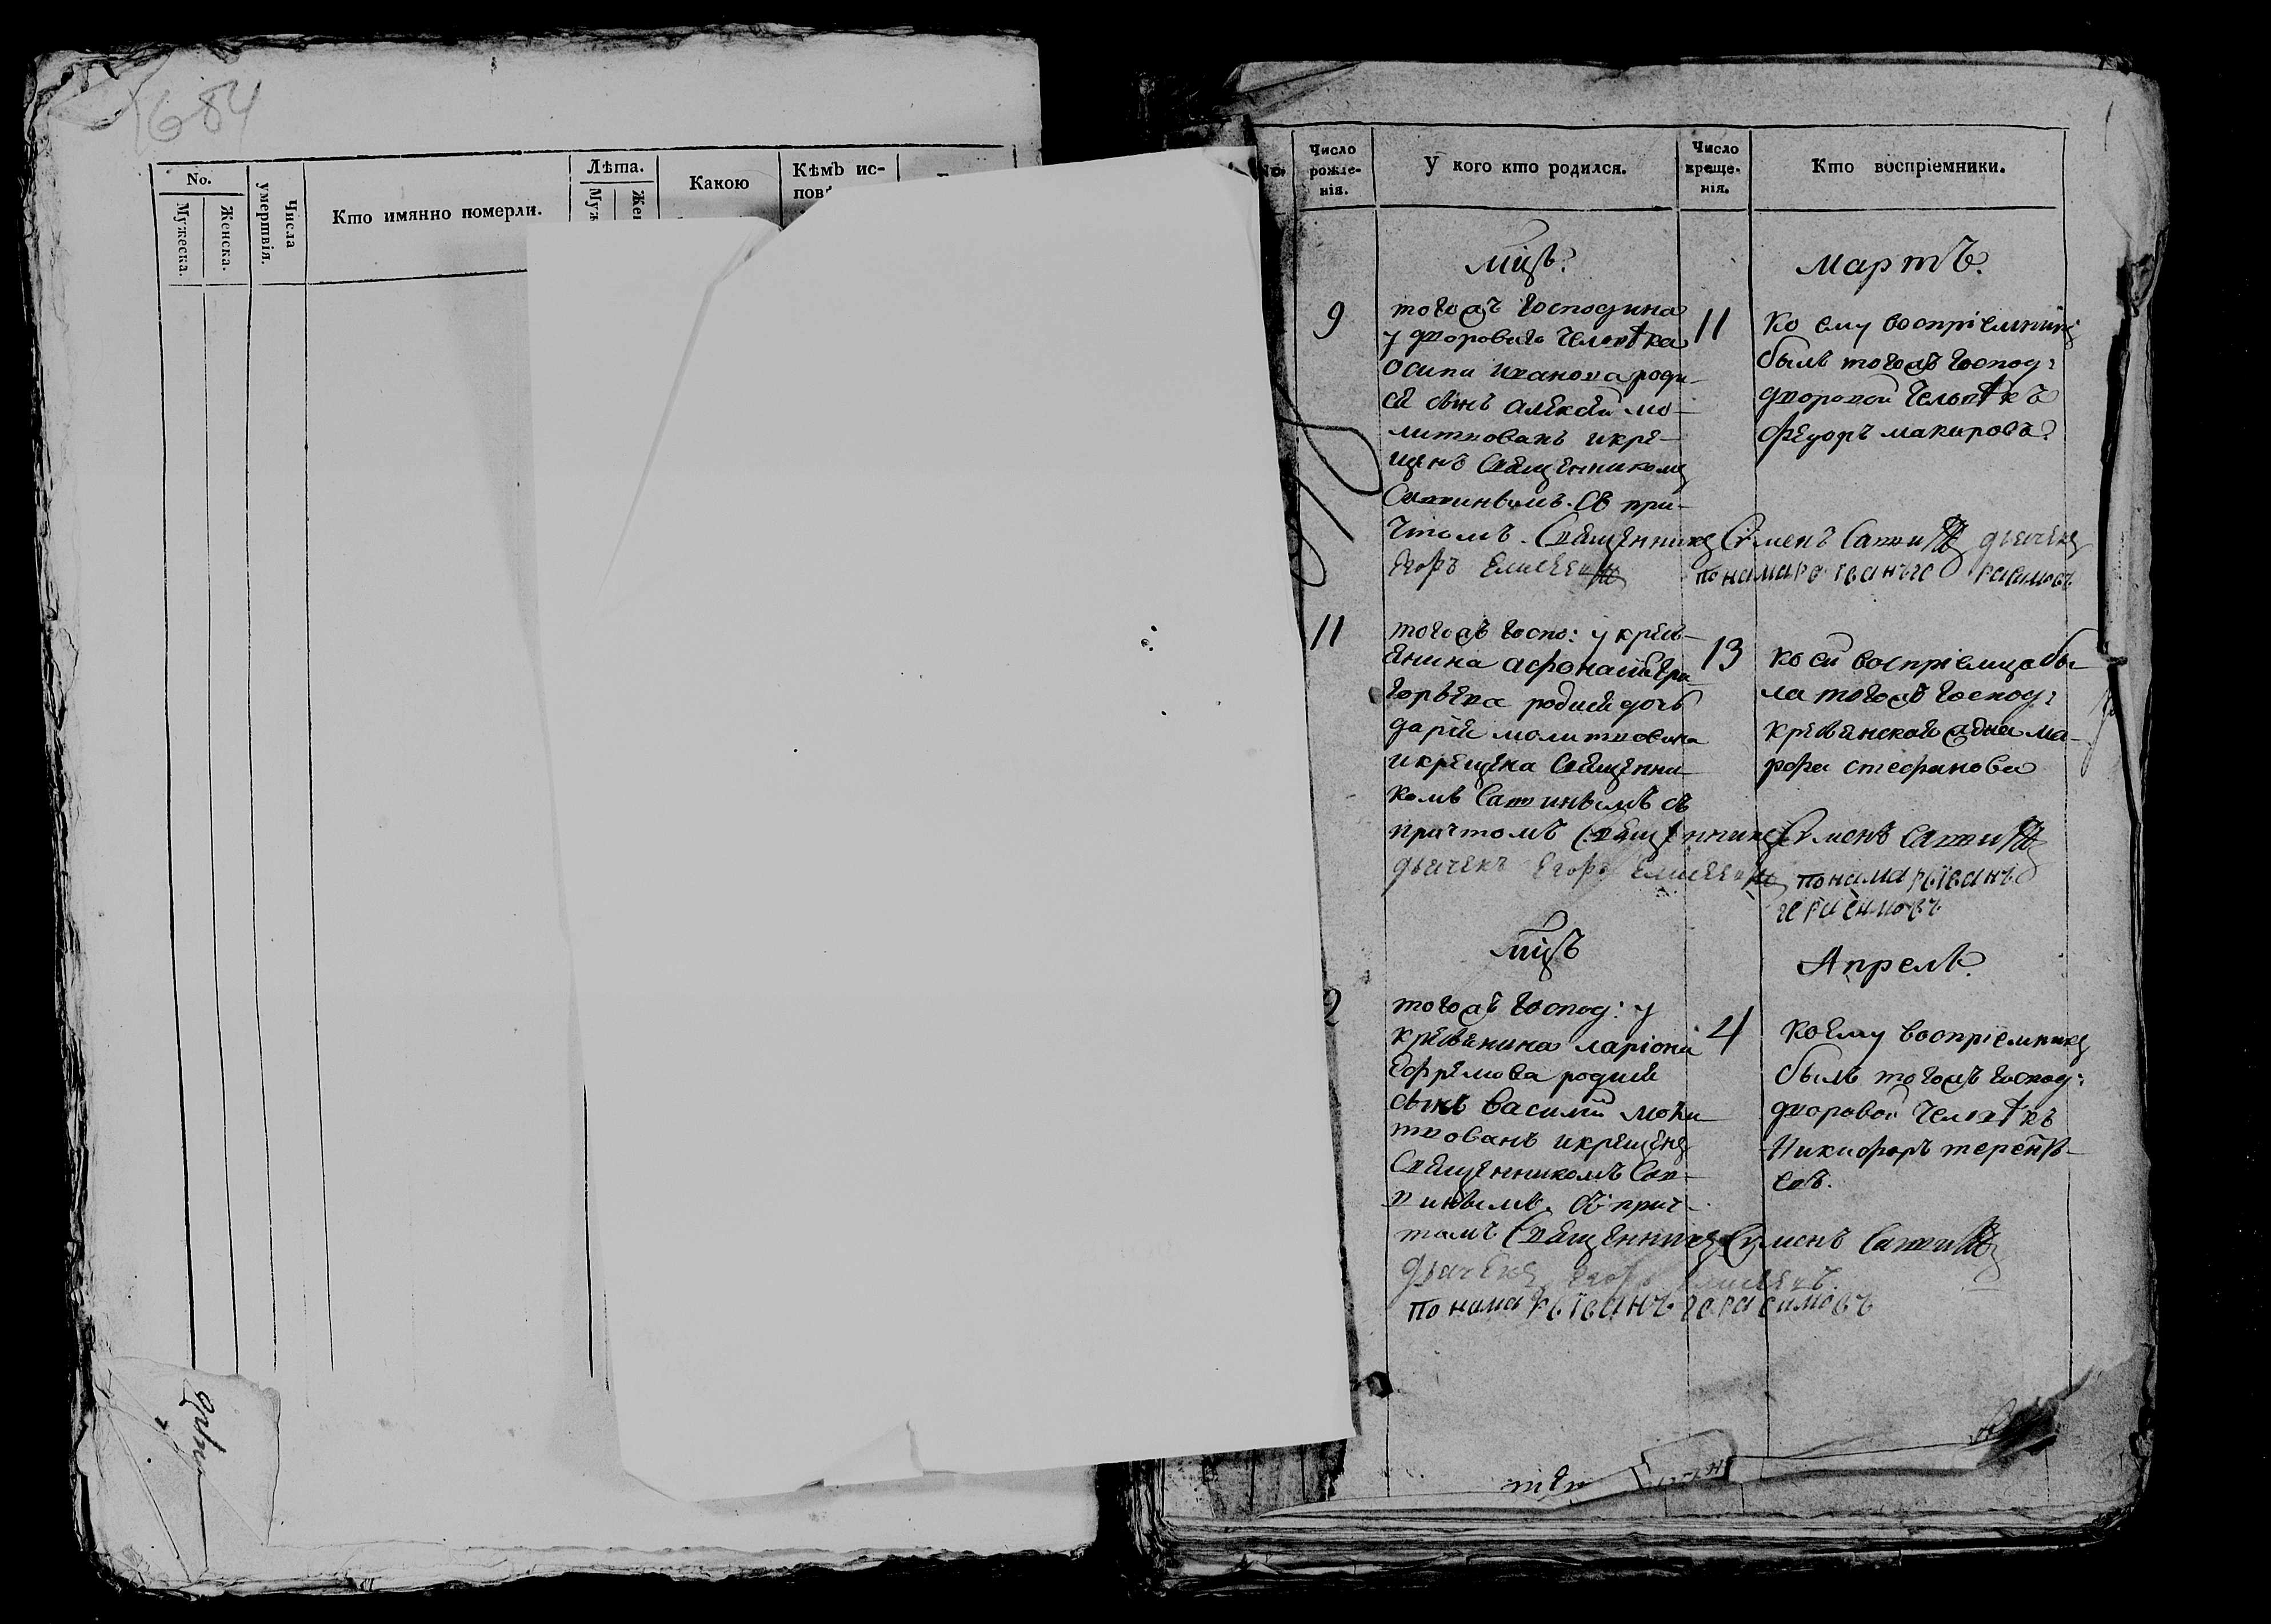 684
No.
Мужеска.
Женска.
Числа
умертвія.
Кто имянно померли.
Лѣта.
Муж
Же
Какою
Кѣмъ ис-
пов
No.
Число
рожде-
нія.
У кого кто родился.
Число
креще-
нія.
Кто воспріемники.
мцъ.
Мартъ.
9
тогожъ Господина
у двороваго человѣка
осипа иванова роди-
ся сынъ алексѣй мо-
литвованъ икре-
щенъ Священникомъ
Саввинымъ. Съ при-
чтомъ. Священникъ Сименъ Савви дьячекъ
Егоръ Елисеевъ понамарь Iванъ Герасимовъ
11
ко ему воспріемникъ
былъ тогожъ Господ:
дворовой человѣкъ
Федоръ макаровъ.
11
тогожъ Госпо: у кресь-
янина афонасія гри-
горьева родися дочь
дарія молитвована
икрещена Священни-
комъ Саввинымъ съ
причтомъ Священникъ Сименъ Савви
дьячекъ Егоръ Елисеевъ понамарь Iванъ
герасимовъ
13
коей воспріемица бы-
ла тогожъ Господ:
кресьянской жена ма-
рфа стефанова
мцъ
Апрель.
2
тогожъ Господ: у
кресьянина ларіона
Ефремова родися
сынъ василій моли-
твованъ икрещенъ
Священникомъ Сав-
винымъ. Съ прич-
томъ Священникъ Сименъ Савви
дьячекъ Егоръ Елисеевъ.
понамарь Iванъ герасимовъ
4
коему воспріемникъ
былъ тогожъ Господ:
дворовой человѣкъ
Никифоръ теренть-
евъ.